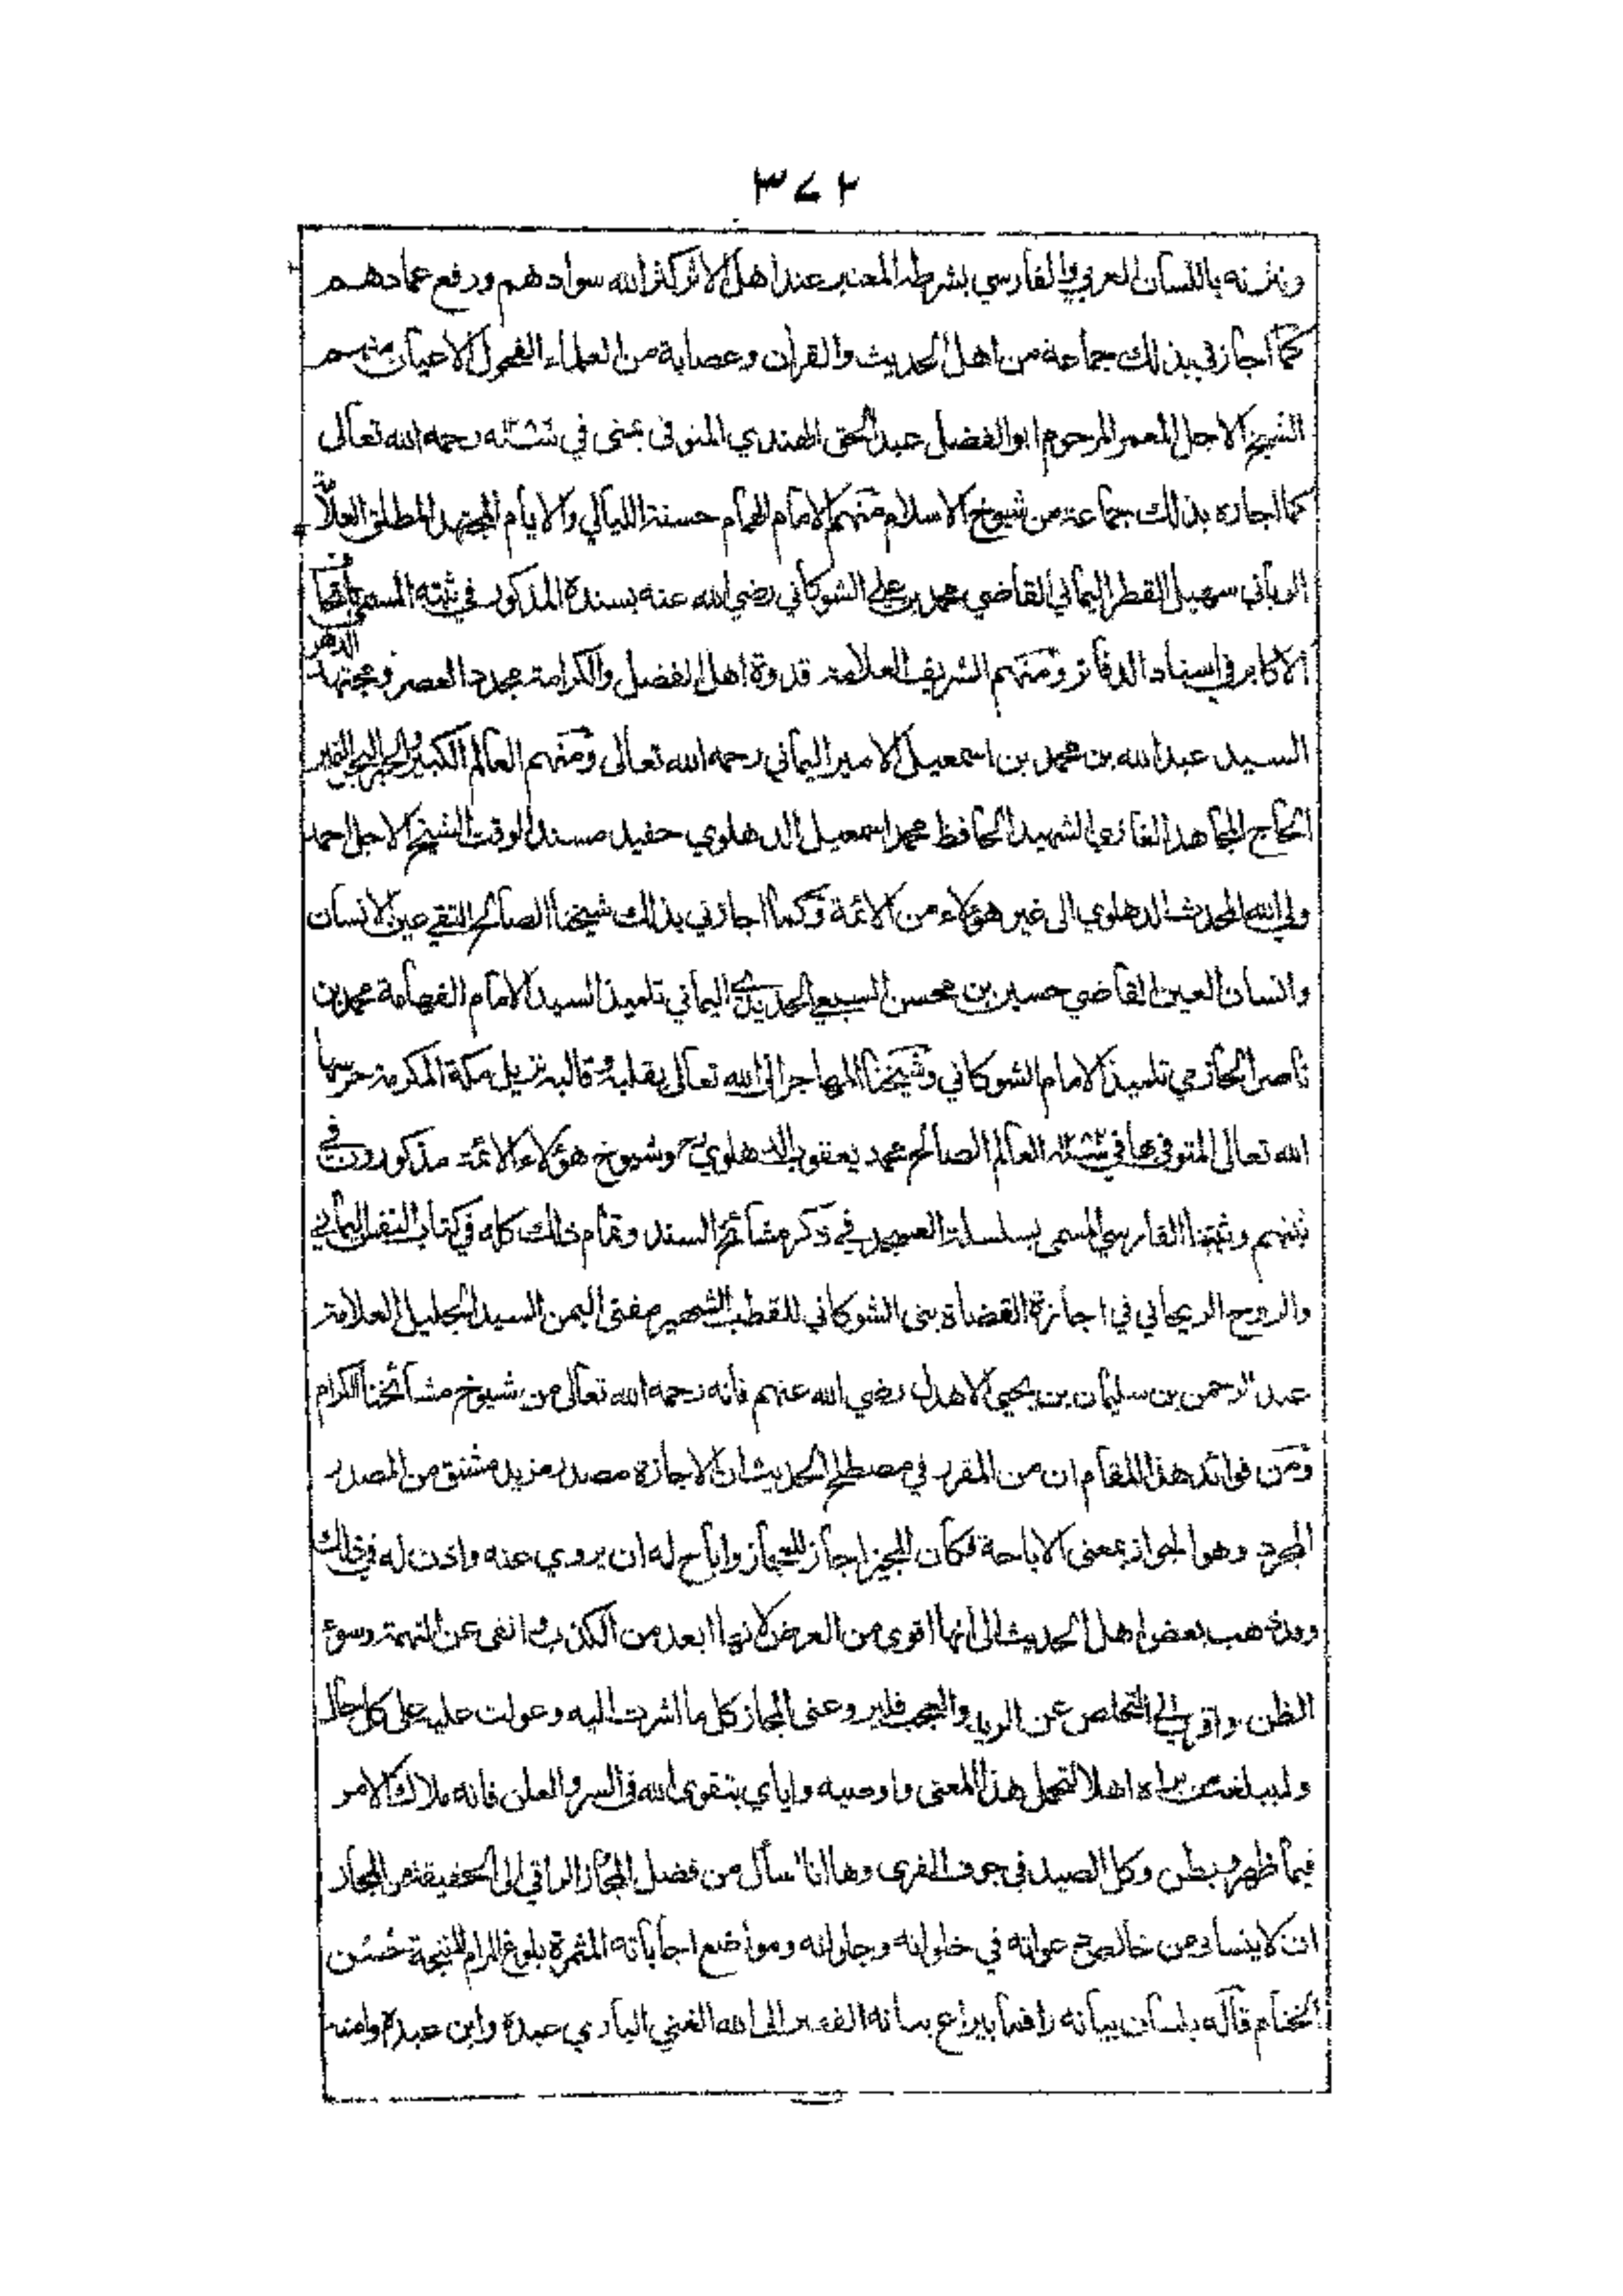 ٣٧٢
ونثرته باللسان العربي والفارسي بشرطه المعتبر عند اهل الاثر كثر الله سوادهم ورفع عمادهم
كما اجازني بذلك جماعة من اهل الحديث والقران وعصابة من العلماء الفحول الاعيان منهم
الشيخ الاجل المعمر المرحوم ابو الفضل عبد الحق الهندي المتوفى بمنى في سنة رحمه الله تعالى
كما اجازه بذلك جماعة من شيوخ الاسلام منهم الامام الهمام حسنة الليالي والايام المجتهد المطلق العلامة
الرباني سهيل القطر اليماني القاضي محمد بن علي الشوكاني رضي الله عنه بسنده المذكور في ثبته المسمى باتحاف
الاكابر في اسناد الدفاتر ومنهم الشريف العلامة قدوة اهل الفضل والكرامة مجدد العصر ومجتهد الدهر
السيد عبد الله بن محمد بن اسمعيل الامير اليماني رحمه الله تعالى ومنهم العالم الكبير والحبر
الحاج المجاهد الغازي الشهيد الحافظ محمد اسمعيل الدهلوي حفيد مسند الوقت الشيخ الاجل احمد
ولي الله المحدث الدهلوي الى غير هؤلاء من الائمة وكما اجازني بذلك شيخنا الصالح التقي عين الانسان
وانسان العين القاضي حسين بن محسن السبيعي الحديدي اليماني تلميذ السيد الامام الفهامة محمد بن
ناصر الحازمي تلميذ الامام الشوكاني وشيخنا المهاجر الى الله تعالى بقلبه وقالبه نزيل مكة المكرمة حرسها
الله تعالى المتوفى بها في سنة العالم الصالح محمد يعقوب الدهلوي رح وشيوخ هؤلاء الائمة مذكورون في
ثبتهم وثبتنا الفارسي المسمى بسلسلة العسجد في ذكر مشائخ السند وتمام ذلك كله في كتاب النفس اليماني
والروح الريحاني في اجازة القضاة بني الشوكاني للقطب الشهير مفتى اليمن السيد الجليل العلامة
عبد الرحمن بن سليمان بن يحيى الاهدل رضي الله عنهم فانه رحمه الله تعالى من شيوخ مشائخنا الكرام
ومن فوائد هذا المقام ان من المقرر في مصطلح الحديث ان الاجازة مصدر مزيد مشتق من المصدر
المجرد وهو الجواز بمعنى الاباحة فكان المجيز اجاز للمجاز واباح له ان يروي عنه واذن له في ذلك
وقد ذهب بعض اهل الحديث الى انها اقوى من العرض لانها ابعد من الكذب وانفى عن التهمة وسوء
الظن واقرب الى التخلص عن الرياء والعجب فليرو عنى المجاز كل ما اشرت اليه وعولت عليه على كل حال
وليبلغه من يراه اهلا لتحمل هذا المعنى واوصيه واياي بتقوى الله فى السر والعلن فانه ملاك الامر
فيما ظهر وبطن وكل الصيد فى جوف الفرى وها انا اسأل من فضل المجاز الراقي الى الحقيقة من المجاز
ان لا ينساني من خالص دعواته في خلواته وجلواته ومواضع اجاباته المثمرة بلوغ المرام المنتجة حُسن
الختام قاله بلسان بيانه راقما بيراع بنانه الفقير الى الله الغني الباري عبده وابن عبده وامته